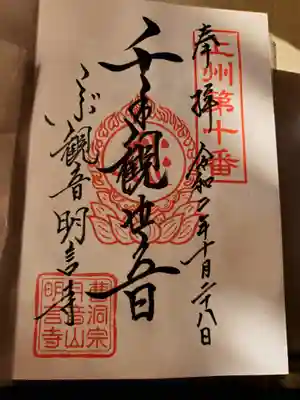 上州第十番
奉拝 令和 年十月二十八日
千手観世音
こぶ観音明言寺
曹洞宗
音山
明言寺